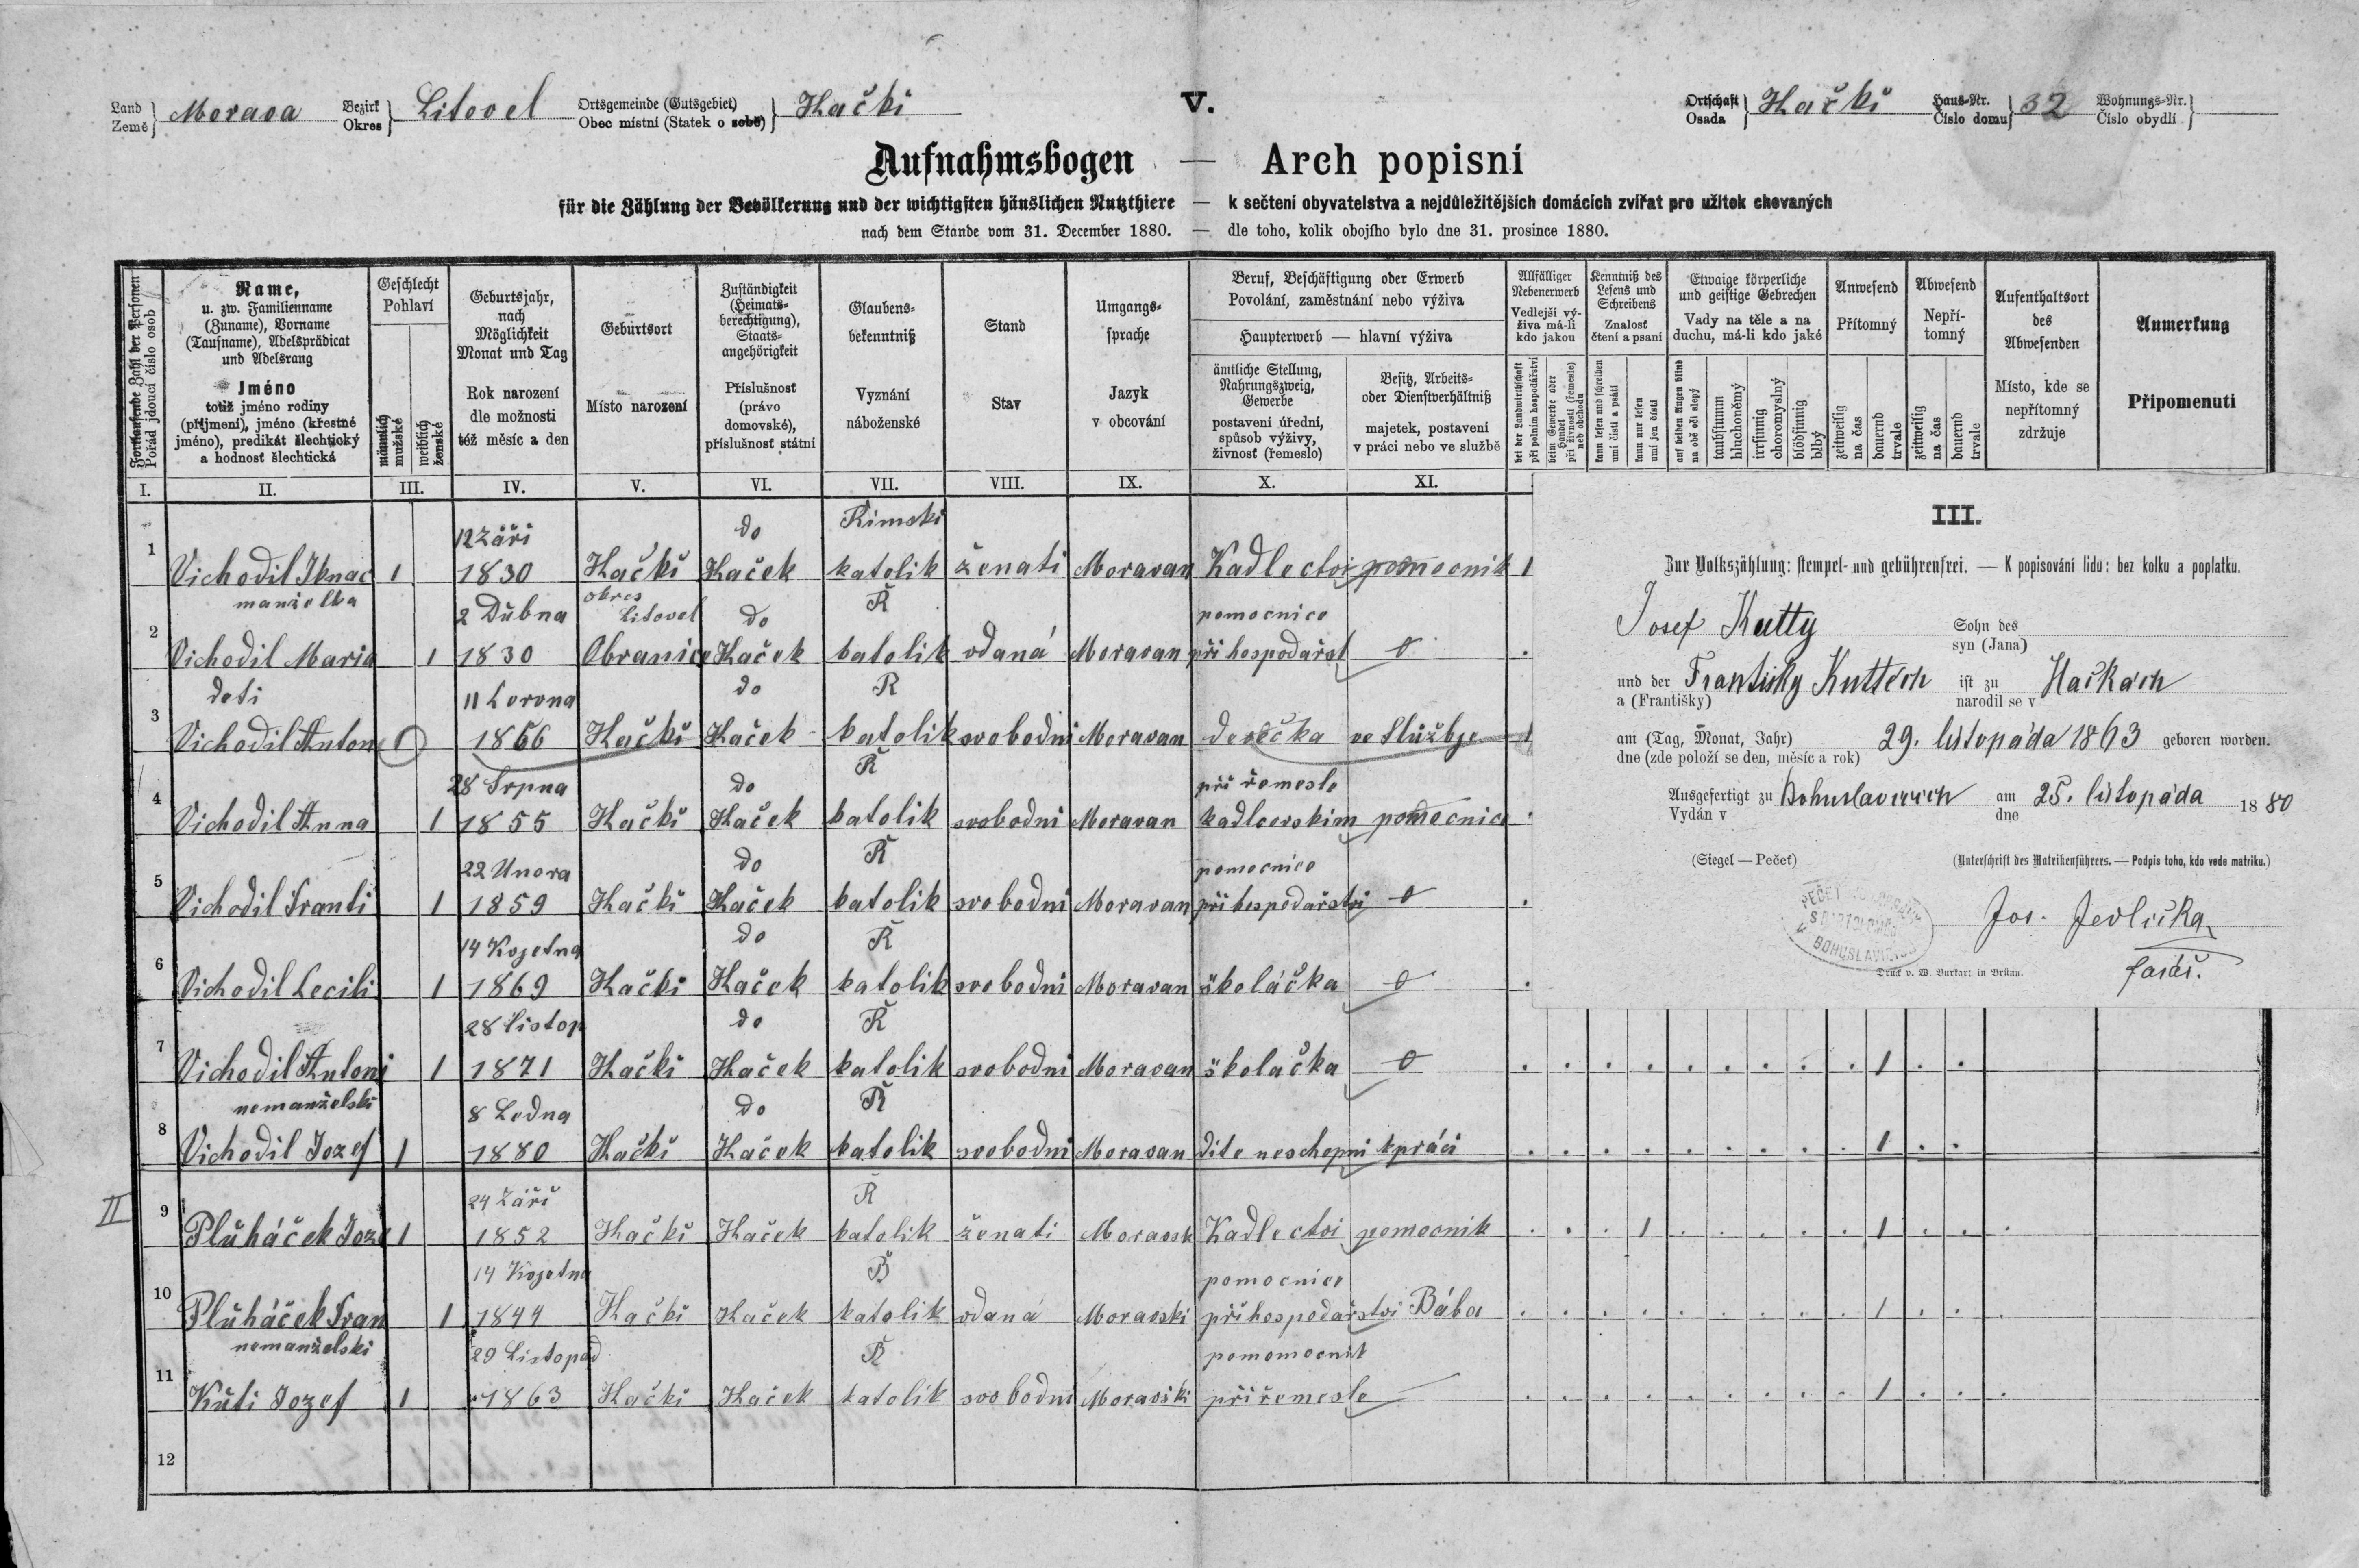 Land Země } Morava Bezirk Okres } Litovel Ortsgemeinde (Gutsgebiet) Obec místní (Statek o sobě) } Hački V. Ortschaft Osada } Hački Haus-Nr. Číslo domu } 32 Wohnungs-Nr. Číslo obydlí }
Aufnahmsbogen — Arch popisní
für die Zählung der Bevölkerung und der wichtigsten häuslichen Nutzthiere — k sečtení obyvatelstva a nejdůležitějších domácích zvířat pro užitek chovaných
nach dem Stande vom 31. December 1880. — dle toho, kolik obojího bylo dne 31. prosince 1880.
Fortlaufende Zahl der Personen
Pořád jdoucí číslo osob
Name,
u. zw. Familienname
(Zuname), Vorname
(Taufname), Adelsprädicat
und Adelsrang
Jméno
totiž jméno rodiny
(příjmení), jméno (křestné
jméno), predikát šlechtický
a hodnost šlechtická
Geschlecht
Pohlaví
männlich
mužské
weiblich
ženské
Geburtsjahr,
nach
Möglichkeit
Monat und Tag
Rok narození
dle možnosti
též měsíc a den
Geburtsort
Místo narození
Zuständigkeit
(Heimats-
berechtigung),
Staats-
angehörigkeit
Příslušnost
(právo
domovské),
příslušnost státní
Glaubens-
bekenntniß
Vyznání
náboženské
Stand
Stav
Umgangs-
sprache
Jazyk
v obcování
Beruf, Beschäftigung oder Erwerb
Povolání, zaměstnání nebo výživa
Haupterwerb — hlavní výživa
ämtliche Stellung,
Nahrungszweig,
Gewerbe
postavení úřední,
spůsob výživy,
živnost (řemeslo)
Besitz, Arbeits-
oder Dienstverhältniß
majetek, postavení
v práci nebo ve službě
Allfälliger
Nebenerwerb
Vedlejší vý-
živa má-li
kdo jakou
bei der Landwirthschaft
při polním hospodářství
beim Gewerbe oder
Handel
při živnosti (řemesle)
neb obchodu
Kenntniß des
Lesens und
Schreibens
Znalost
čtení a psaní
kann lesen und schreiben
umí čísti a psáti
kann nur lesen
umí jen čísti
Etwaige körperliche
und geistige Gebrechen
Vady na těle a na
duchu, má-li kdo jaké
auf beiden Augen blind
na obě oči slepý
taubstumm
hluchoněmý
irrsinnig
choromyslný
blödsinnig
blbý
Anwesend
Přítomný
zeitweilig
na čas
dauernd
trvale
Abwesend
Nepří-
tomný
zeitweilig
na čas
dauernd
trvale
Aufenthaltsort
des
Abwesenden
Místo, kde se
nepřítomný
zdržuje
Anmerkung
Připomenutí
I. II. III. IV. V. VI. VII. VIII. IX. X. XI.
12 Září do Řimski
1 Vichodil Iknac 1 1830 Hački Haček katolik ženati Moravan Kadlectvi pomocnik 1
manželka 2 Dubna okres Litovel do Ř pomocnice
2 Vichodil Maria 1 1830 Obranice Haček katolik vdaná Moravan při hospodařst o
deti 11 Června do Ř
3 Vichodil Anton 1 1866 Hački Haček katolik svobodni Moravan děvečka ve Službje 1
28 Srpna do Ř při řemesle
4 Vichodil Anna 1 1855 Hački Haček katolik svobodni Moravan kadlcovskim pomocnice
22 Unora do Ř pomocnice
5 Vichodil Franti 1 1859 Hački Haček katolik svobodni Moravan při hospodařstvi o
14 Kvjetna do Ř
6 Vichodil Cecili 1 1869 Hački Haček katolik svobodni Moravan školáčka o
28 Listop do Ř
7 Vichodil Antoni 1 1871 Hački Haček katolik svobodni Moravan školačka o 1
nemanželski 8 Ledna do Ř
8 Vichodil Jozef 1 1880 Hački Haček katolik svobodni Moravan dite neschopni kpráci 1
24 Září Ř
II 9 Pluháček Joze 1 1852 Hački Haček katolik ženati Moravsk Kadlectvi pomocnik 1 1
14 Kvjetna Ř pomocnice
10 Pluháček Fran 1 1844 Hački Haček katolik vdaná Moravski při hospodařstvi Bába 1
nemanželski 29 Listopad Ř pomomocnik
11 Kuti Jozef 1 1863 Hački Haček katolik svobodni Moravski při řemesle 1
12
III.
Zur Volkszählung: stempel- und gebührenfrei. — K popisování lidu: bez kolku a poplatku.
Josef Kutty Sohn des syn (Jana)
und der a (Františky) Františky Kuttěch ist zu narodil se v Hačkách
am (Tag, Monat, Jahr) dne (zde položí se den, měsíc a rok) 29. listopada 1863 geboren worden.
Ausgefertigt zu Vydán v Bohuslavicích am dne 25. listopáda 1880
(Siegel — Pečeť) (Unterschrift des Matrikenführers. — Podpis toho, kdo vede matriku.)
Jos. Jedlička
farář.
BOHUSLAVICÍCH
Druck v. W. Burkart in Brünn.